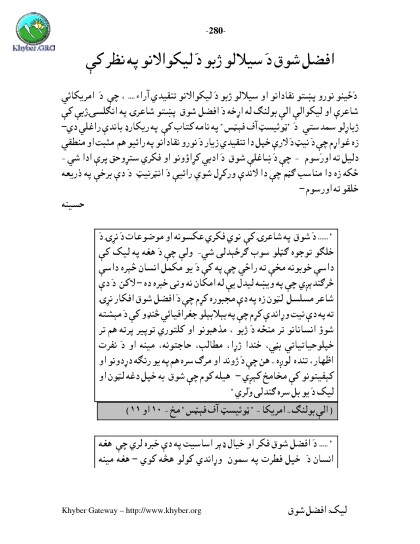 -280-
Khyber.ORG
افضل شوق دَ سيلالو ژبو دَ ليکوالانو په نظر کې
دَځينو نورو پښتو نقادانو او سيلالو ژبو دَ ليکوالانو تنقيدي آراء.... ، چې دَ امريکائي
شاعرې او ليکوالې الې بولنګ له اړخه دَ افضل شوق پښتو شاعرۍ په انګلسۍژبې کې
ژباړلو سمدستي دَ "ټوئيسټ آف فېټس" په نامه کتاب کې په ريکارډ باندې راغلي دي-
زه غواړم چې دَنيټ دَلارې خپل دا تنقيدي زيار دَ نورو نقادانو په رائيو هم مثبت او منطقي
دليل ته اورَسوم - چې دَ ښاغلي شوق دَ ادبي کړاؤونو او فکري ستړوحق پرې ادا شي-
ځکه زه دا مناسب ګڼم چې دا لاندې ورکړل شوې رائيې دَ انټرنيټ دَ دې برخې په ذريعه
خلقو ته اورسوم-
حسينه
"..... دَ شوق په شاعرۍ کې نوي فکري عکسونه او موضوعات دَ نړۍ دَ
خلګو توجوه ګټلو سوب ګرځېدلی شي- ولې چې دَ هغه په ليک کې
داسې خوبونه مخې ته راځي چې په کې دَ يو مکمل انسان خبره داسې
څرګندېږي چې په ويښه ليدل يې له امکان نه وتی خبره ده-لاکن دَ دې
شاعر مسلسل لټون زه په دې مجبوره کړم چې دَ افضل شوق افکار نړۍ
ته په دې نيت وړاندې کړم چې په بېلابېلو جغرافيائي څنډو کې دَ مېشته
شوؤ انسانانو تر منځه دَ ژبو ، مذهبونو او کلتوري توپير پرته هم تر
خپلوحياتياتي بڼې، خندا ژړا، مطالب، حاجتونه، مينه او دَ نفرت
اظهار، تنده لوږه. هن چې دَژوند او مرګ سره هم په يو رنګه دردونو او
کيفيتونو کې مخامخ کيږي- هيله کوم چې شوق به خپل دغه لټون او
ليک دَ يو بل سره ګنډلی ولري"
( الې بولنګ - امريکا - "ټوئيسټ آف فېټس" مخ - ۱۰ او ۱۱ )
"..... دَ افضل شوق فکر او خيال ډېر اساسيت په دې خبره لري چې هغه
انسان دَ خپل فطرت په سمون وړاندې کولو هڅه کوي - هغه مينه
Khyber Gateway – http://www.khyber.org
ليک: افضل شوق